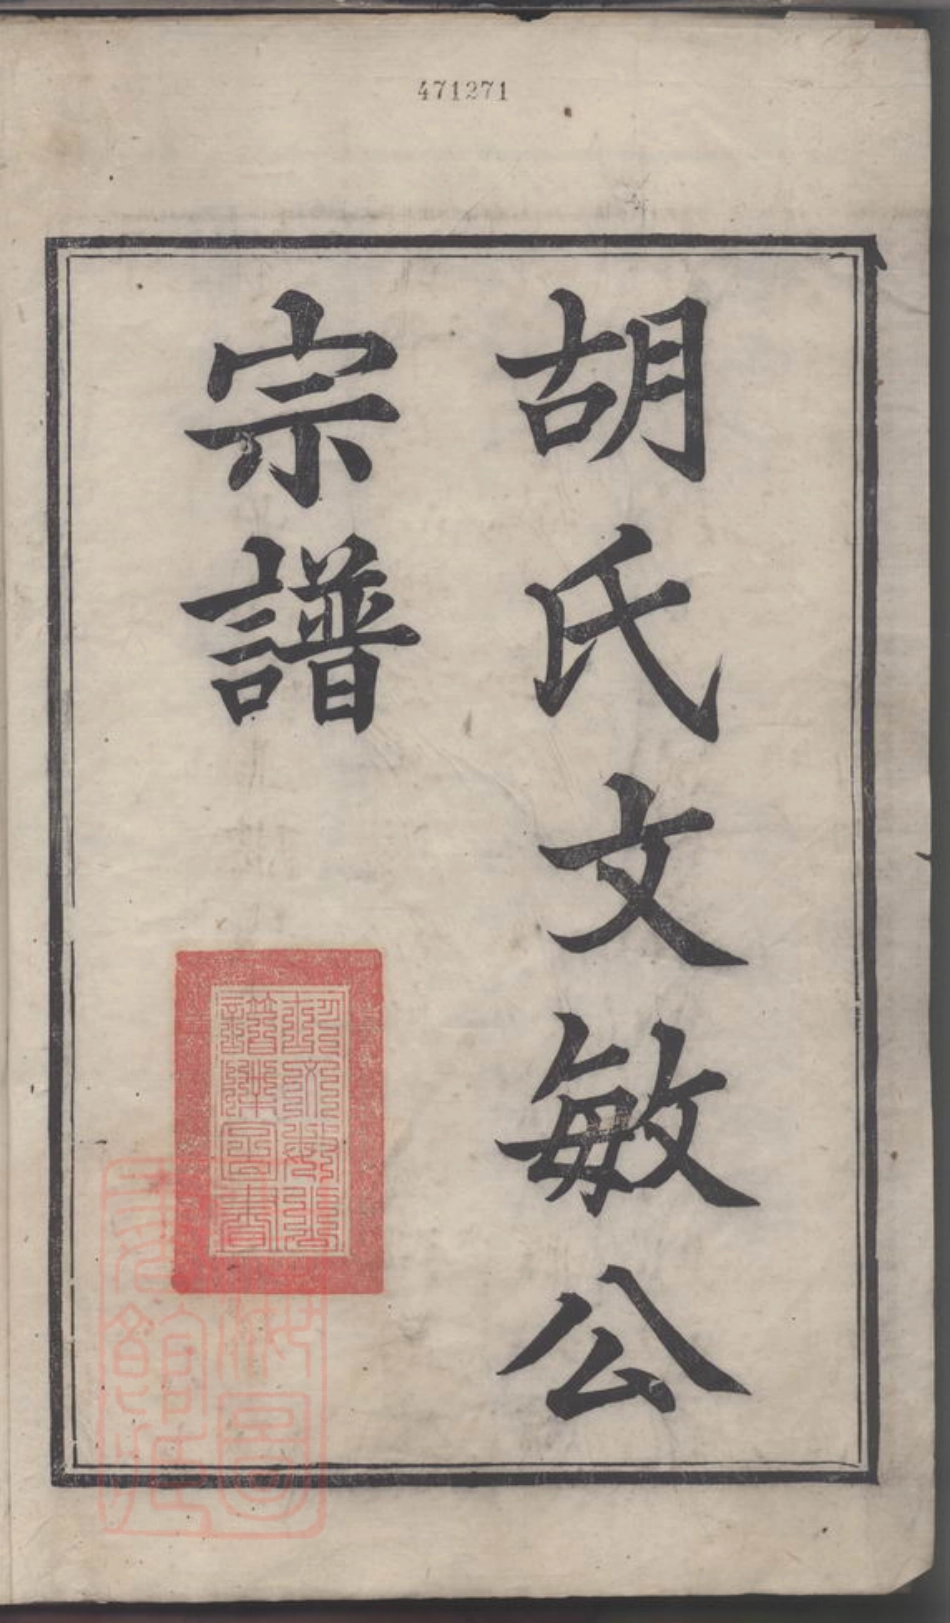 471271
胡氏文敏公
宗譜